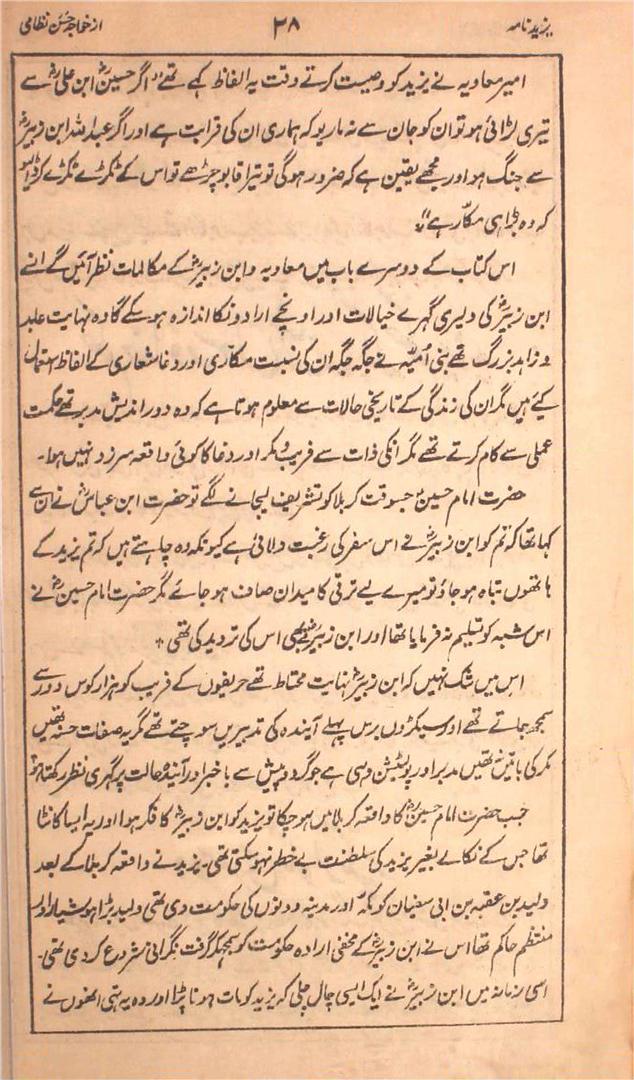 یزید نامہ ۲۸ از خواجہ حسن نظامی
امیر معاویہ نے یزید کو وصیت کرتے وقت یہ الفاظ کہے تھے "اگر حسینؓ ابن علیؓ سے
تیری لڑائی ہو تو ان کو جان سے نہ ماریو کہ ہماری ان کی قرابت ہے اور اگر عبداللہ ابن زبیرؓ
سے جنگ ہو اور مجھے یقین ہے کہ ضرور ہوگی تو تیرا قابو چڑھے تو اس کے ٹکڑے ٹکڑے کر ڈالیو
کہ وہ بڑا ہی مکار ہے"۔
اس کتاب کے دوسرے باب میں معاویہ و ابن زبیرؓ کے مکالمات نظر آئیں گے انسے
ابن زبیرؓ کی دلیری گہرے خیالات اور اونچے ارادونکا اندازہ ہو سکے گا وہ نہایت عابد
و زاہد بزرگ تھے بنی اُمیّہ نے جگہ جگہ ان کی نسبت مکّاری اور دغا شعاری کے الفاظ استعمال
کیے ہیں مگر ان کی زندگی کے تاریخی حالات سے معلوم ہوتا ہے کہ وہ دور اندیش مدبر تھے حکمت
عملی سے کام کرتے تھے مگر انکی ذات سے فریب و مکر اور دغا کا کوئی واقعہ سرزد نہیں ہوا۔
حضرت امام حسینؓ جسوقت کربلا کو تشریف لیجانے لگے تو حضرت ابن عباسؓ نے ان سے
کہا تھا کہ تم کو ابن زبیرؓ نے اس سفر کی رغبت دلائی ہے کیونکہ وہ چاہتے ہیں کہ تم یزید کے
ہاتھوں تباہ ہو جاؤ تو میرے لیے ترقی کا میدان صاف ہو جائے مگر حضرت امام حسینؓ نے
اس شبہ کو تسلیم نہ فرمایا تھا اور ابن زبیرؓ نے بھی اس کی تردید کی تھی ۔
اس میں شک نہیں کہ ابن زبیرؓ نہایت محتاط تھے حریفوں کے فریب کو ہزار کوس دور سے
سمجھ جاتے تھے اور سیکڑوں برس پہلے آیندہ کی تدبیریں سوچتے تھے مگر یہ صفات حسنہ تھیں
مکر کی باتیں نہ تھیں مدبر اور پولٹیشن وہی ہے جو گرد و پیش سے باخبر اور آیندہ حالت پر گہری نظر رکھتا ہو
جب حضرت امام حسینؓ کا واقعہ کربلا میں ہو چکا تو یزید کو ابن زبیرؓ کا فکر ہوا اور یہ ایسا کانٹا
تھا جس کے نکالے بغیر یزید کی سلطنت بے خطر نہو سکتی تھی۔ یزید نے واقعہ کربلا کے بعد
ولید بن عقبہ بن ابی سفیان کو مکہ اور مدینہ دونوں کی حکومت دی تھی ولید بڑا ہوشیار اور
منتظم حاکم تھا اس نے ابن زبیرؓ کے مخفی ارادہ حکومت کو سمجھکر گرفت نگرانی شروع کر دی تھی۔
اسی زمانہ میں ابن زبیرؓ نے ایک ایسی چال چلی کہ یزید کو مات ہونا پڑا اور وہ یہ تھی انھوں نے